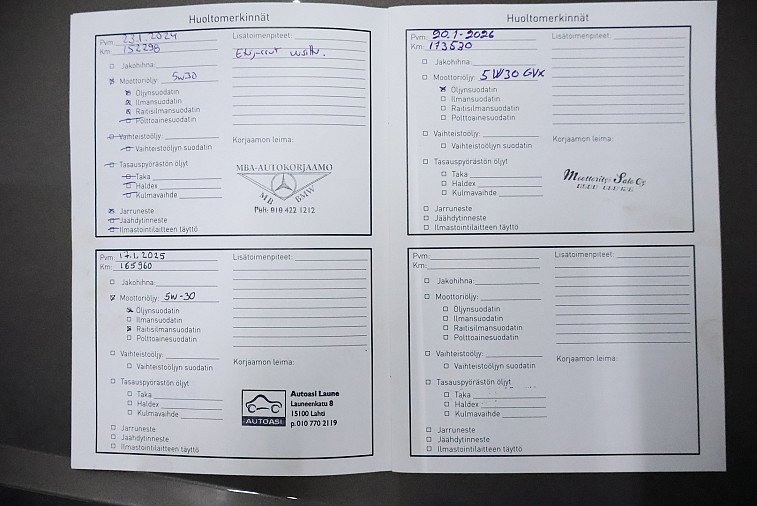 Huoltomerkinnät
Pvm: 23.1.2024
Km: 152298
Jakohihna:
Moottoriöljy: 5W30
Öljynsuodatin
Ilmansuodatin
Raitisilmansuodatin
Polttoainesuodatin
Vaihteistoöljy:
Vaihteistoöljyn suodatin
Tasauspyörästön öljyt
Taka
Haldex
Kulmavaihde
Jarruneste
Jäähdytinneste
Ilmastointilaitteen täyttö
Lisätoimenpiteet:
Korjaamon leima:
MBA-AUTOKORJAAMO
MB BMW
Puh: 010 422 1212
Pvm: 17.1.2025
Km: 165960
Jakohihna:
Moottoriöljy: 5W-30
Öljynsuodatin
Ilmansuodatin
Raitisilmansuodatin
Polttoainesuodatin
Vaihteistoöljy:
Vaihteistoöljyn suodatin
Tasauspyörästön öljyt
Taka
Haldex
Kulmavaihde
Jarruneste
Jäähdytinneste
Ilmastointilaitteen täyttö
Lisätoimenpiteet:
Korjaamon leima:
AUTOASI
Autoasi Laune
Launeenkatu 8
15100 Lahti
p.010 770 2119
Huoltomerkinnät
Pvm: 20.1-2026
Km: 173530
Jakohihna:
Moottoriöljy: 5W30 GVX
Öljynsuodatin
Ilmansuodatin
Raitisilmansuodatin
Polttoainesuodatin
Vaihteistoöljy:
Vaihteistoöljyn suodatin
Tasauspyörästön öljyt
Taka
Haldex
Kulmavaihde
Jarruneste
Jäähdytinneste
Ilmastointilaitteen täyttö
Lisätoimenpiteet:
Korjaamon leima:
Salo Oy
Pvm:
Km:
Jakohihna:
Moottoriöljy:
Öljynsuodatin
Ilmansuodatin
Raitisilmansuodatin
Polttoainesuodatin
Vaihteistoöljy:
Vaihteistoöljyn suodatin
Tasauspyörästön öljyt
Taka
Haldex
Kulmavaihde
Jarruneste
Jäähdytinneste
Ilmastointilaitteen täyttö
Lisätoimenpiteet:
Korjaamon leima: